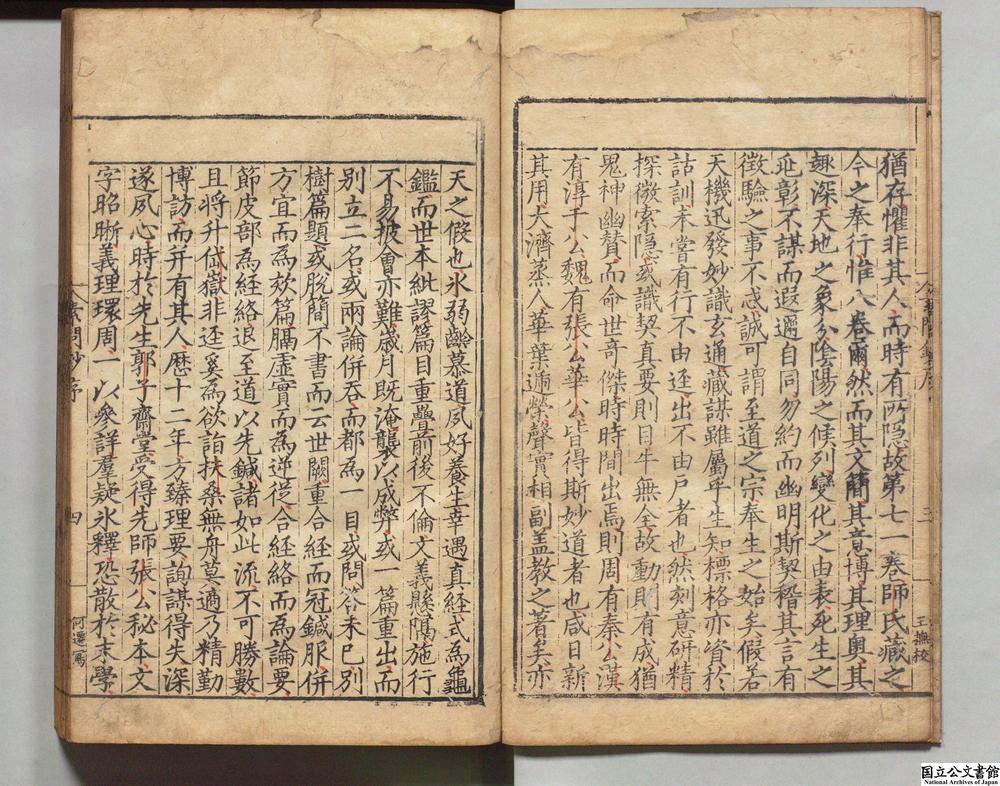 猶存懼非其人而時有所隱故第七一卷師氏藏之
今之奉行惟八卷爾然而其文簡其意博其理奧其
趣深天地之象分陰陽之候列變化之由表死生之
兆彰不謀而遐邇自同勿約而幽明斯契稽其言有
徵驗之事不忒誠可謂至道之宗奉生之始矣假若
天機迅發妙識玄通蕆謀雖屬乎生知標格亦資於
詁訓未嘗有行不由逕出不由戶者也然刻意硏精
探微索隱或識契真要則目牛無全故動則有成猶
鬼神幽贊而命世奇傑時時間出焉則周有秦公漢
有淳于公魏有張公華公皆得斯妙道者也咸日新
其用大濟蒸人華葉遞榮聲實相副盖教之著矣亦
三
王撫校
天之假也氷弱齡慕道夙好養生幸遇真経式為龜
鑑而世本紕謬篇目重疊前後不倫文義懸隔施行
不易披會亦難歲月旣淹襲以成弊或一篇重出而
別立二名或兩論併吞而都為一目或問答未已別
樹篇題或脫簡不書而云世闕重合経而冠鍼服併
方宜而為欬篇隔虛實而為逆從合経絡而為論要
節皮部為経絡退至道以先鍼諸如此流不可勝數
且將升岱嶽非逕奚為欲詣扶桑無舟莫適乃精勤
博訪而幷有其人歷十二年方臻理要詢謀得失深
遂夙心時於先生郭子齋堂受得先師張公秘本文
字昭晰義理環周一以參詳羣疑氷釋恐散於末學
素問抄序
四
何遷寫
国立公文書館
National Archives of Japan